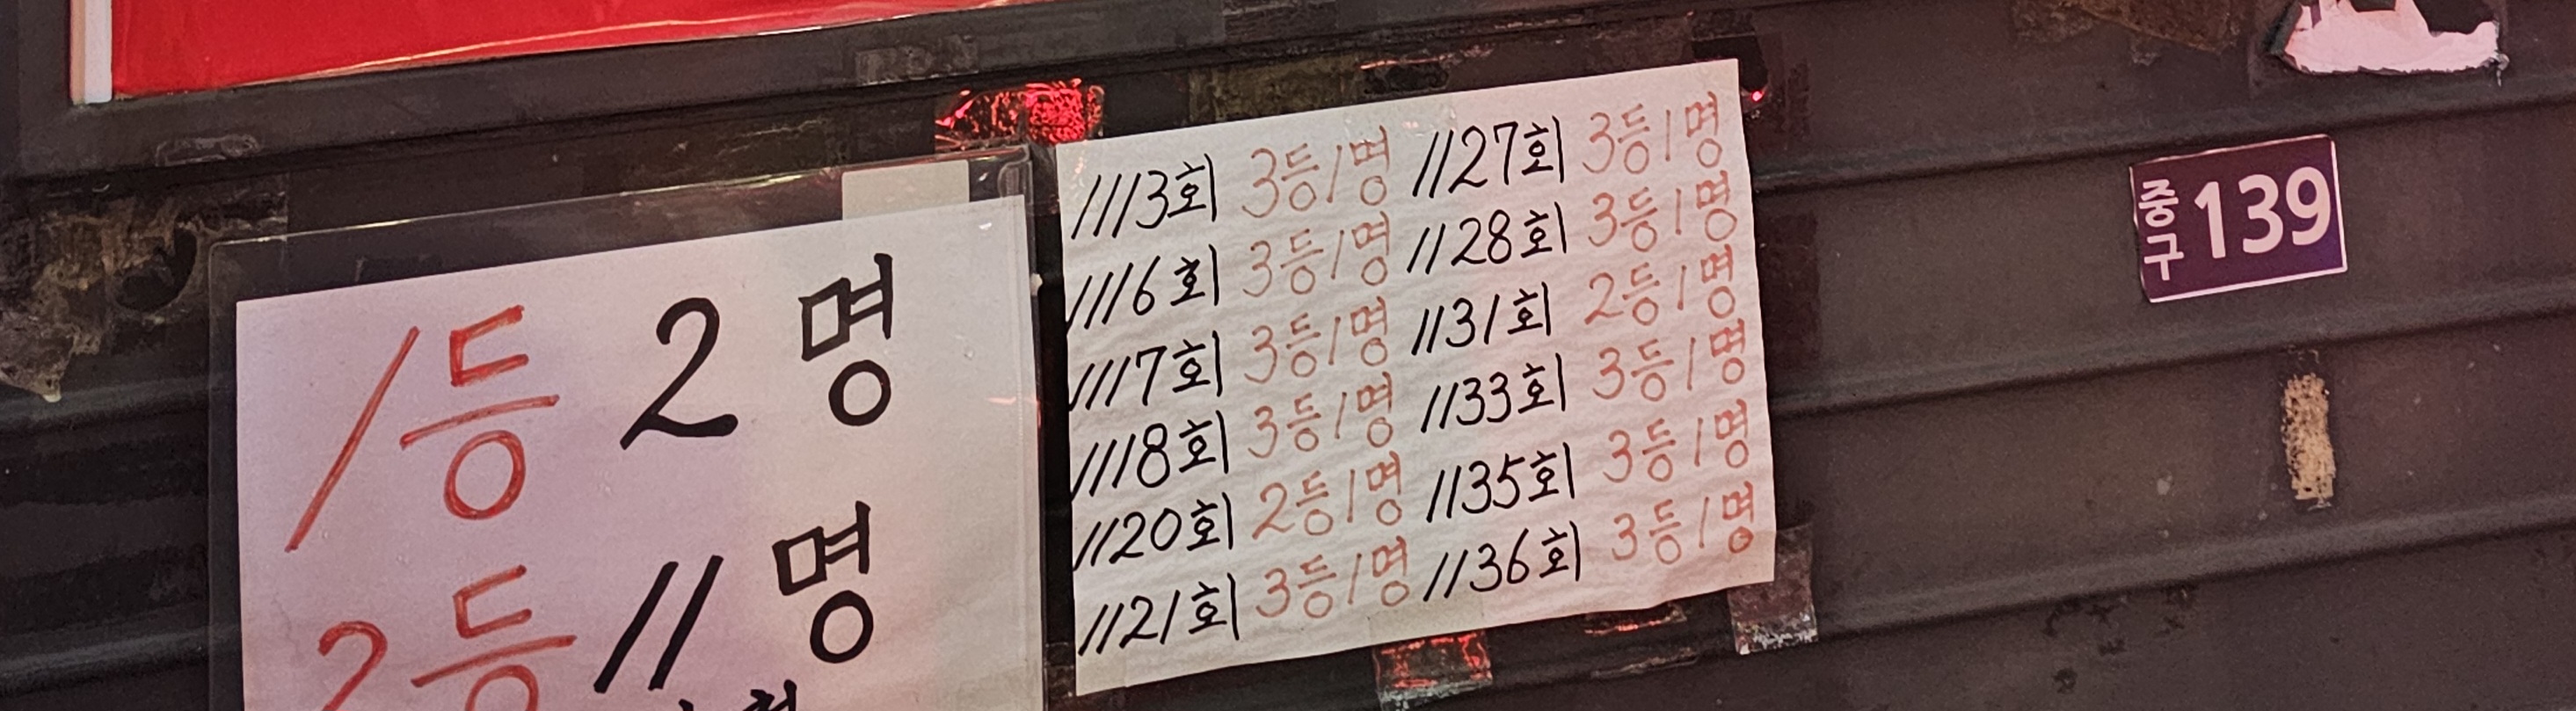 1등 2명
2등 11명
1113회 3등1명 1127회 3등1명
1116회 3등1명 1128회 3등1명
1117회 3등1명 1131회 2등1명
1118회 3등1명 1133회 3등1명
1120회 2등1명 1135회 3등1명
1121회 3등1명 1136회 3등1명
중구 139